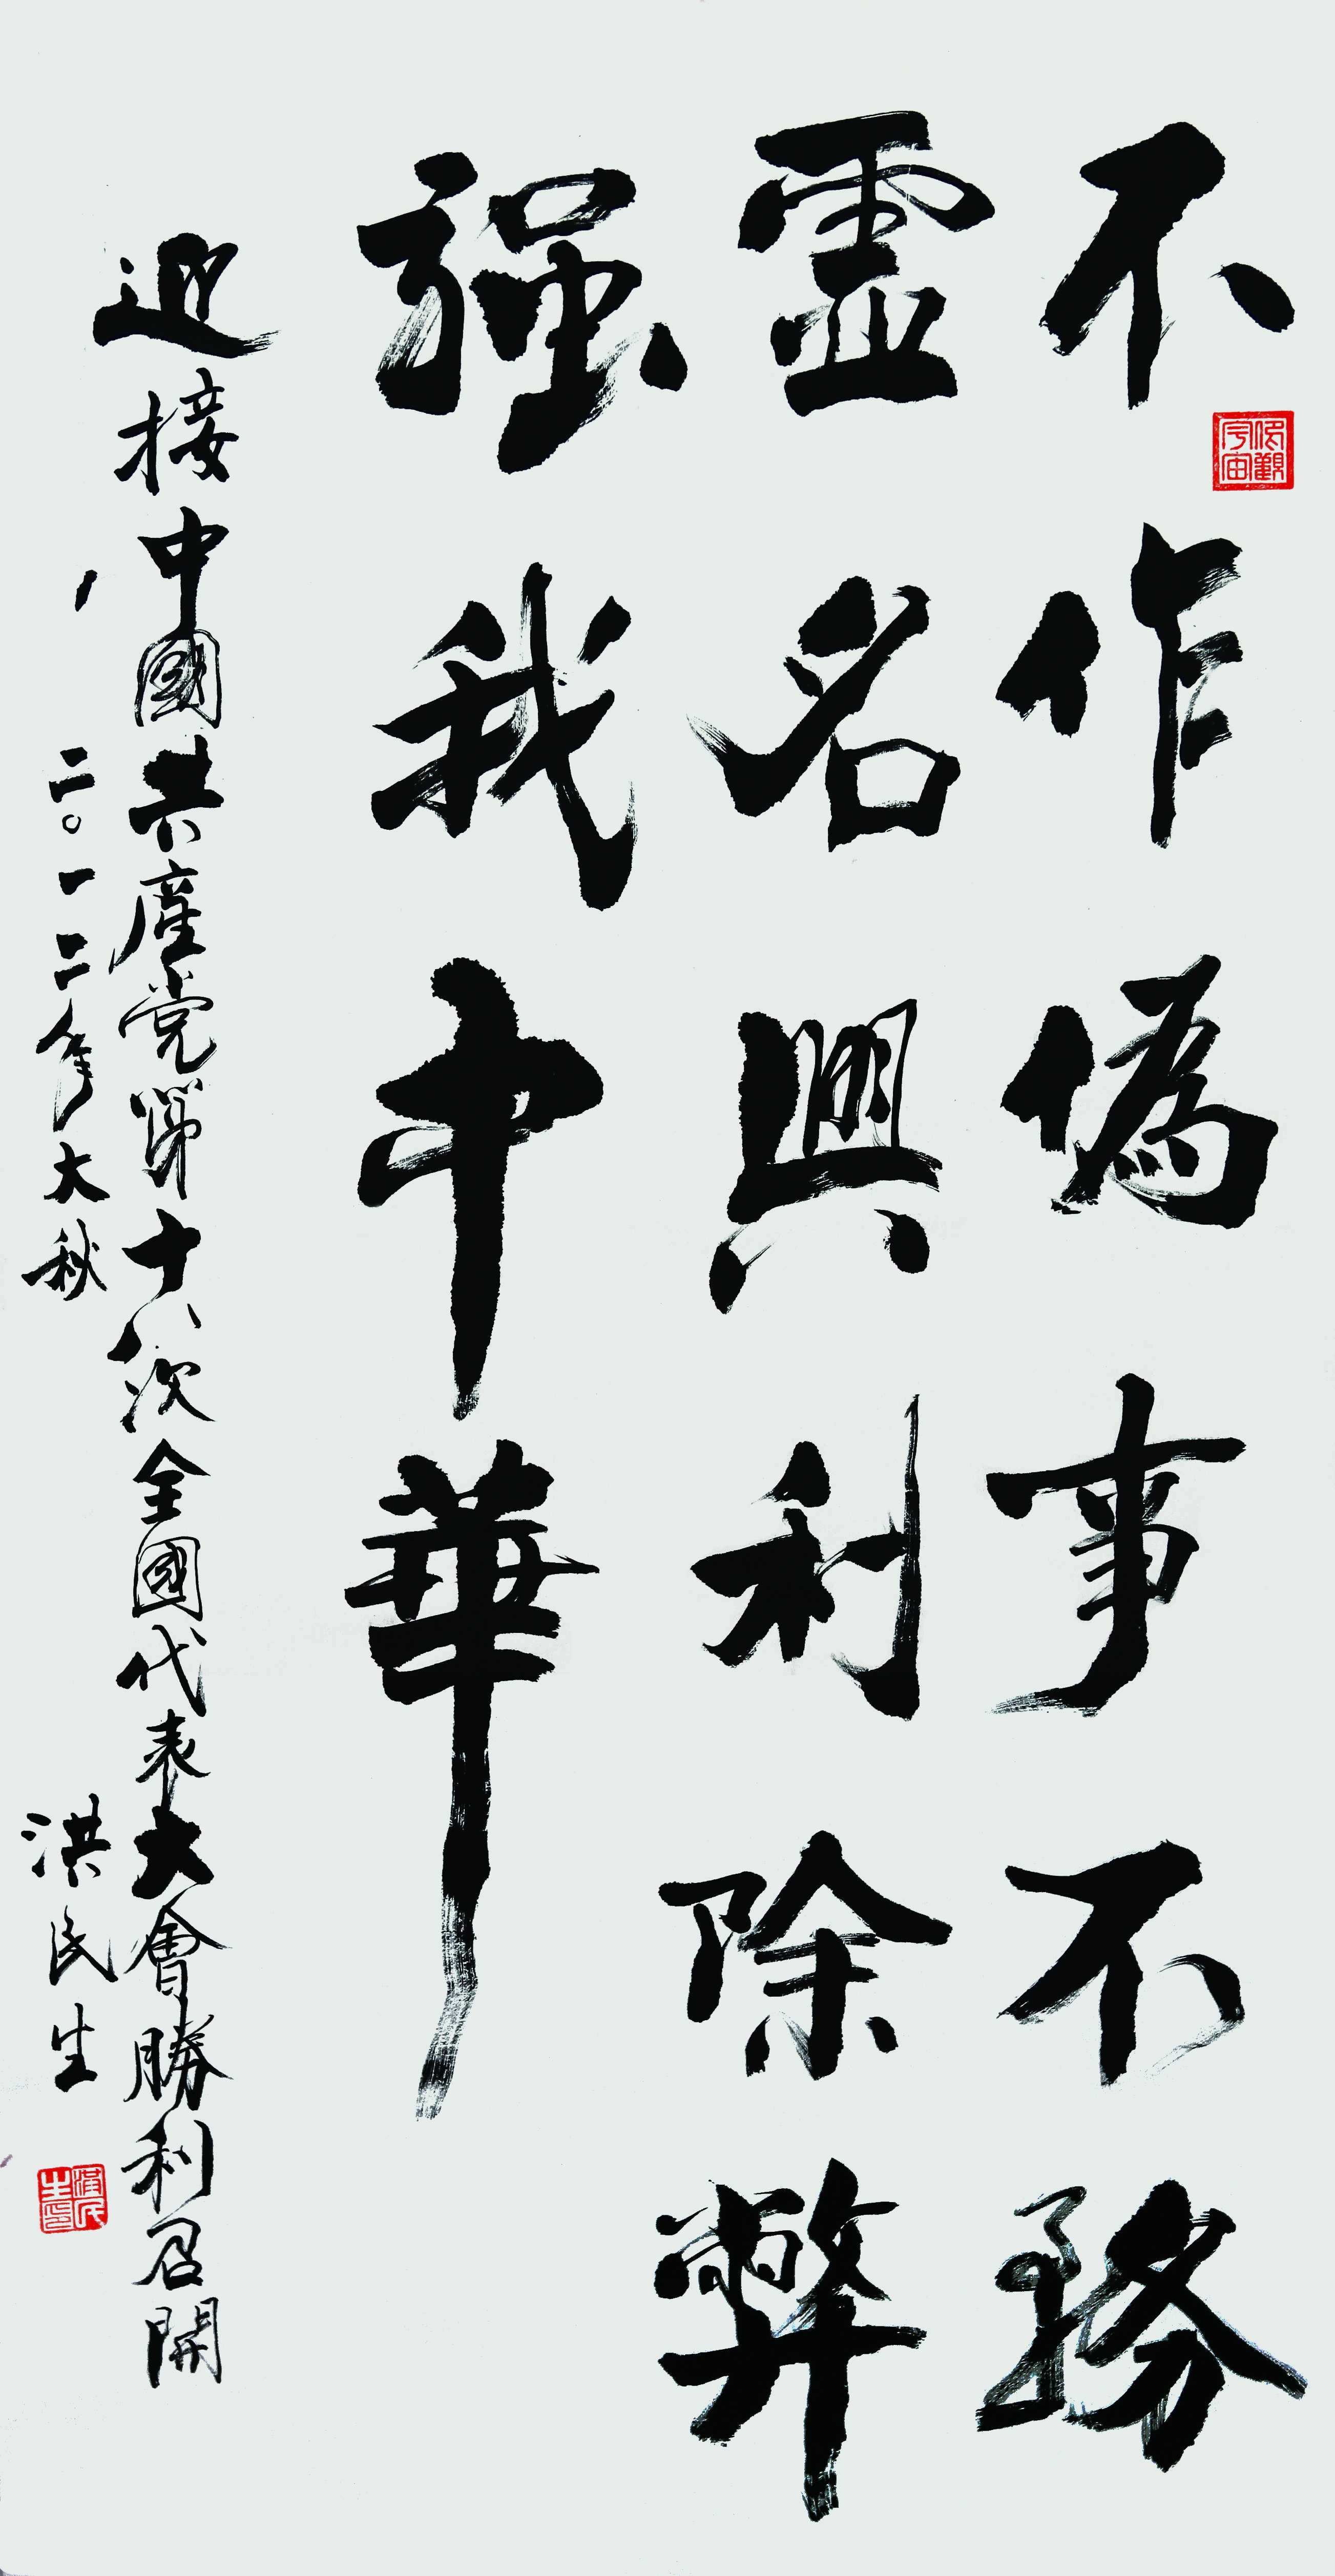 不作偽事不務
虛名興利除弊
强我中華
迎接中國共產党第十八次全國代表大會勝利召開
二〇一二年大秋
洪民生
洪民生印